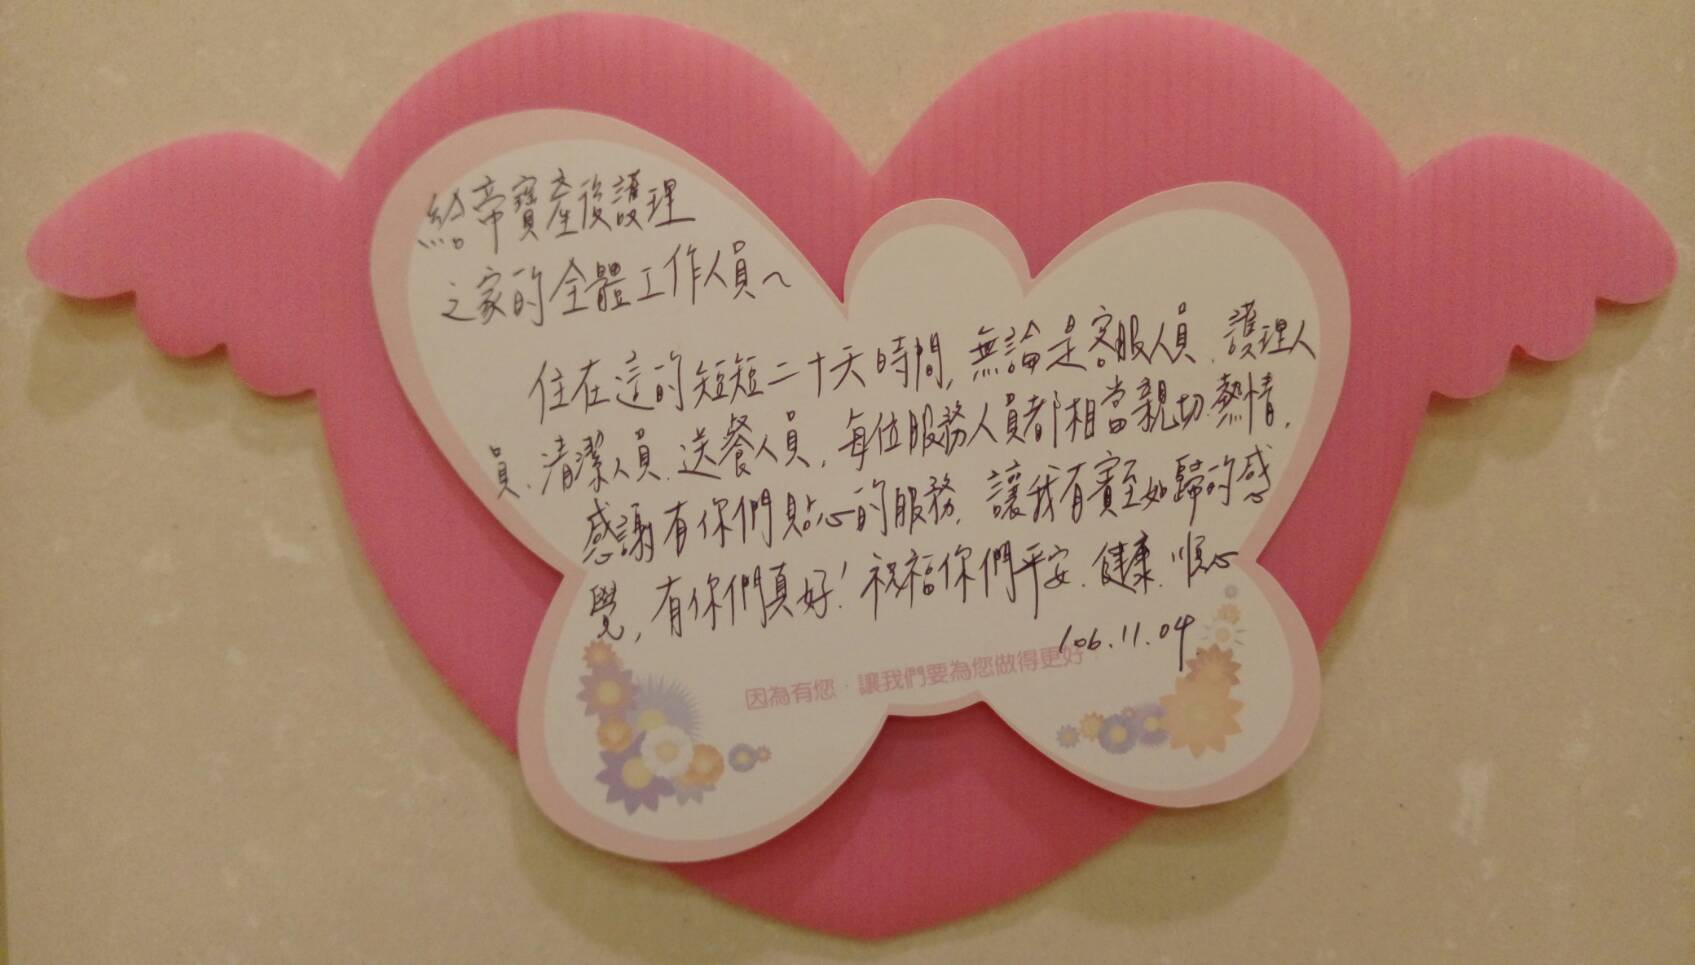 給帝寶產後護理
之家的全體工作人員~
住在這的短短二十天時間,無論是客服人員、護理人
員、清潔人員、送餐人員,每位服務人員都相當親切、熱情,
感謝有你們貼心的服務,讓我有賓至如歸的感
覺,有你們真好!祝福你們平安、健康、順心
106.11.04
因為有您,讓我們要為您做得更好